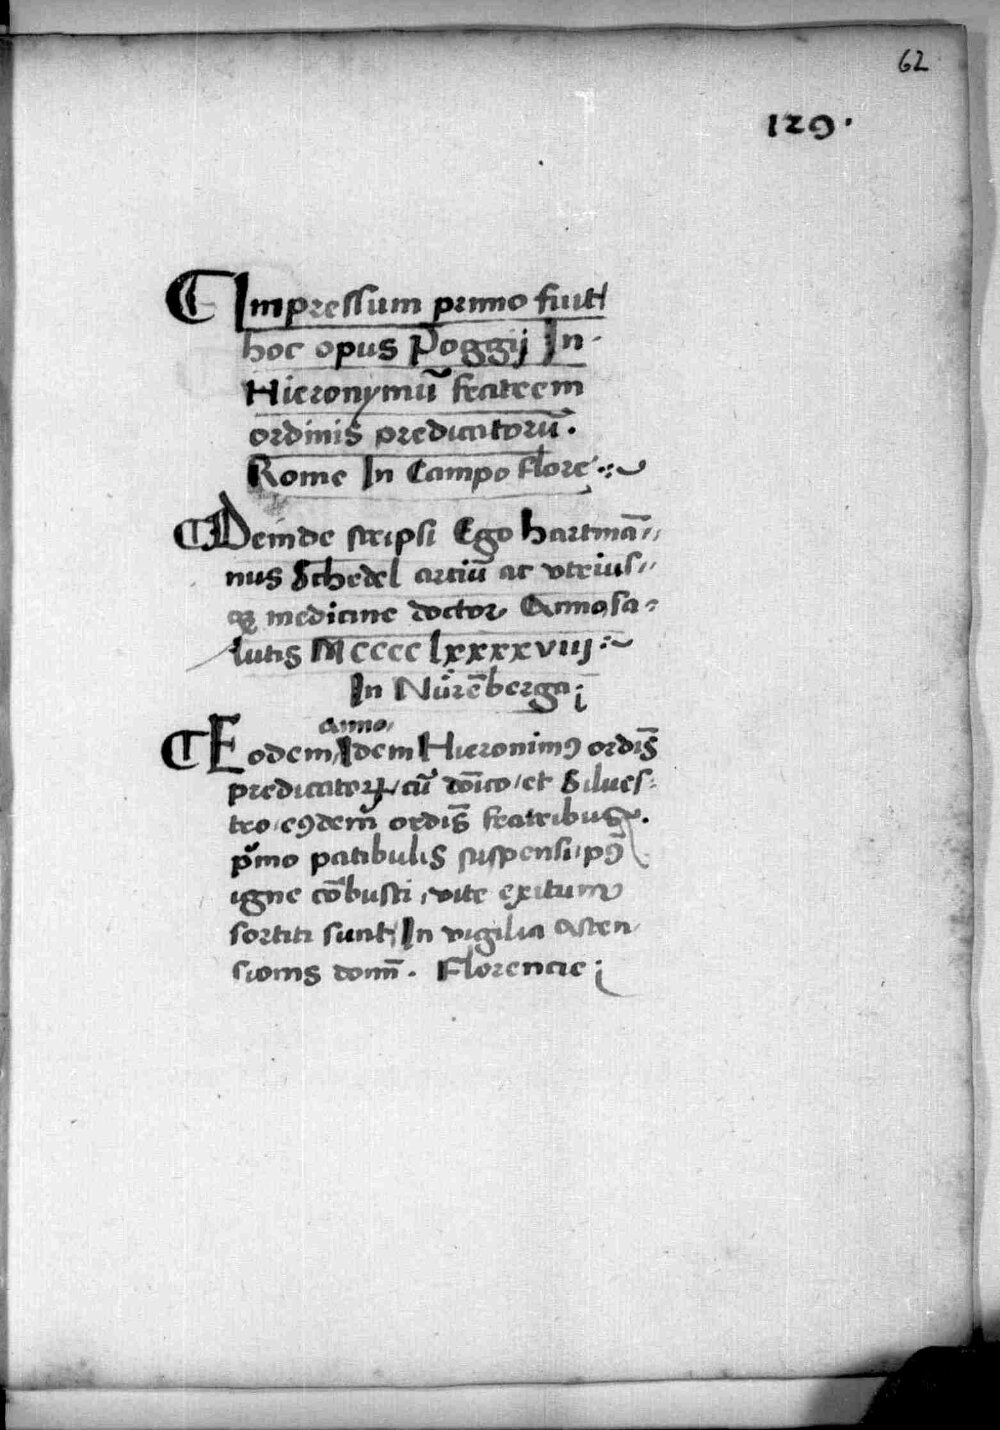 62
129.
¶ Impressum primo fuit
hoc opus Poggij In-
Hieronymū fratrem
ordinis predicatorū.
Rome In Campo flore
¶ Deinde scripsi Ego hartmā-
nus Schedel artiū ac vtrius-
qꝫ medicine doctor Anno sa-
lutis MCCCC lxxxxviij
In Nůrēberga
anno
¶ Eodem Idem Hieronimꝰ ordīs
predicatorꝝ / cū dōīco / et Silues-
tro / eꝰdem ordīs fratribus.
pͥmo patibulis suspensi / pꝰ
igne cōbusti / vite exitum
sortiti sunt / In vigilia Ascen
sionis domī. Florencie